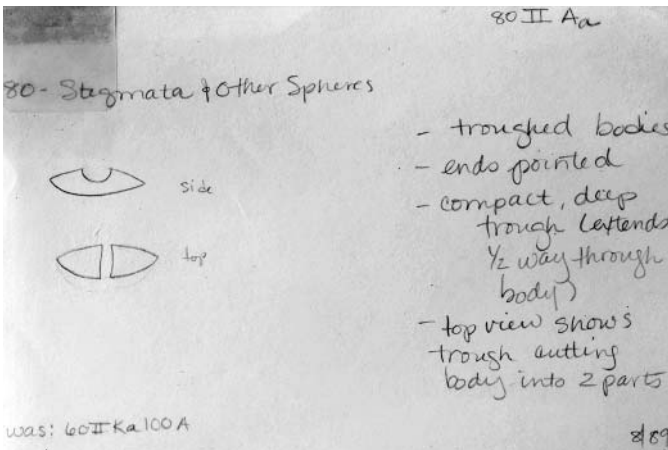 80 II Aa
80 - Stegmata & Other Spheres
- troughed bodies
- ends pointed
- compact, deep
trough (extends
1/2 way through
body)
- top view shows
trough cutting
body into 2 parts
side
top
was: 60 II Ka 100 A
8/89